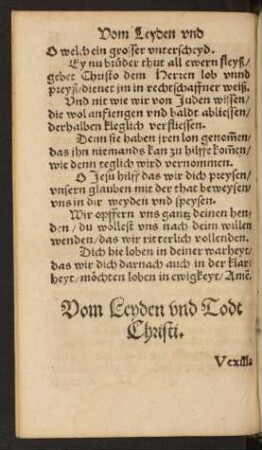 Vom Leyden vnd
O welch ein grosser vnterscheyd.
Ey nu brüder thut all ewern fleyß/
gebet Christo dem Herren lob vnnd
preyß/dienet jm in rechtschaffner weiß.
Vnd nit wie wir von Juden wissen/
die wol anfiengen vnd baldt abliessen/
derhalben kleglich verfliessen.
Denn sie haben jren lon genom̃en/
das jhn niemands kan zu hilff kom̃en/
wie denn teglich wird vernommen.
O Jesu hilff das wir dich preysen/
vnsern glauben mit der that beweysen/
vns in dir weyden vnd speysen.
Wir opffern vns gantz deinen hen-
den/ du wollest vns nach deim willen
wenden/das wir ritterlich vollenden.
Dich hie loben in deiner warheyt/
das wir dich darnach auch in der klar-
heyt/möchten loben in ewigkeyt/Amẽ.
Vom Leyden vnd Todt
Christi.
Vexilla